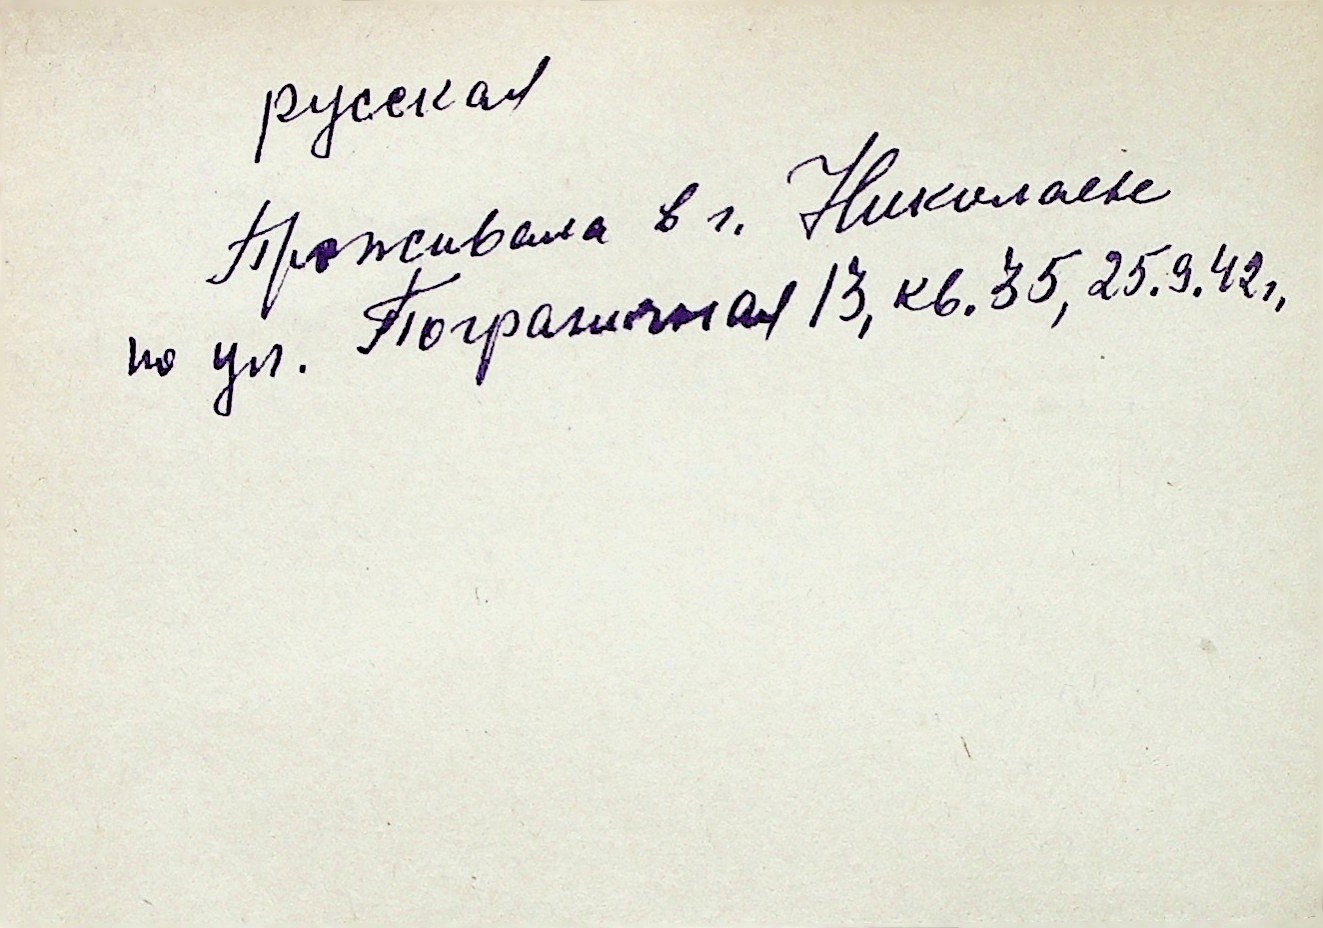 русская
Проживала в г. Николаеве
по ул. Пограничная 13, кв. 35, 25.9.42г,